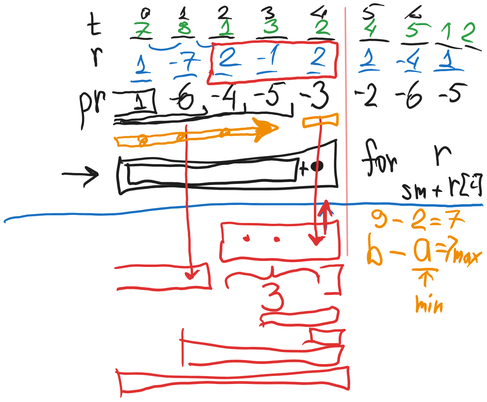 0 1 2 3 4 5 6
t 7 8 1 3 2 4 5 1 2
r 1 -7 2 -1 2 1 -4 1
pr 1 -6 -4 -5 -3 -2 -6 -5
+ for r
sm + r[i]
9 - 2 = 7
b - a = ? max
min
3